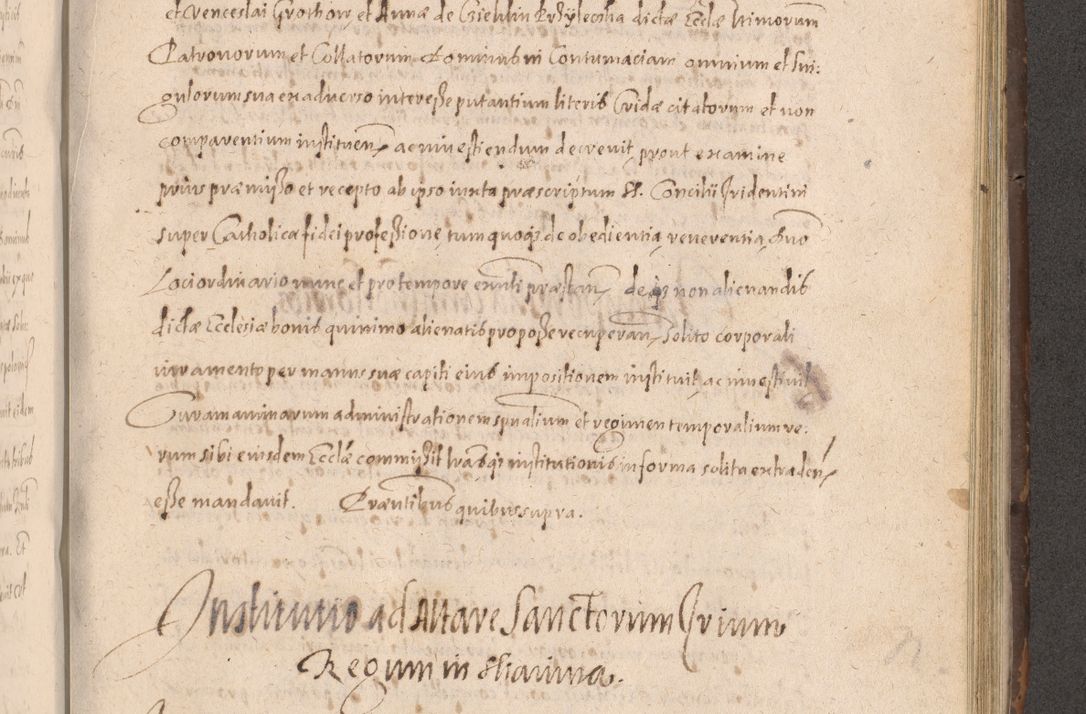 et Venceslai Grothow et Annæ de dictæ Ecclæ ltimorum
Patronorum et Collatorum Dominus in Contumaciam omnium et sin:
gulorum sua ex adverso interesse putantium literis Cridæ citatorum et non
comparentium instituen ac investiendum decrevit, prout examine
prius præmisso et recepto ab ipso iuxta præscriptum S. Concilii Tridentini
super Catholicæ fidei professione, tum quoqȝ de obedientia, reverentia, Suo
Loci ordinario nunc et pro tempore exnti præstan, deqȝ non alienandis
dictæ Ecclesiæ bonis quinimo alienatis pro posse recuperan, solito corporali
iuramento per manus suæ capiti eius impositionem instituit, ac investivit
Curam animarum administrationem spualium et regimen temporalium re.
rum sibi eiusdem Ecclæ commisit lrasqȝ institutionis in forma solita extraden
esse mandavit. Præntibus quibus supra.
Institutio ad Altare Sanctorum Trium
Regum in